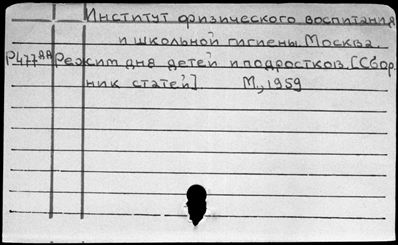 Институт физического воспитания
и школьной гигиены. Москва.
Р477аа Режим дня детей и подростков. [Сбор.
ник статей]. М., 1959